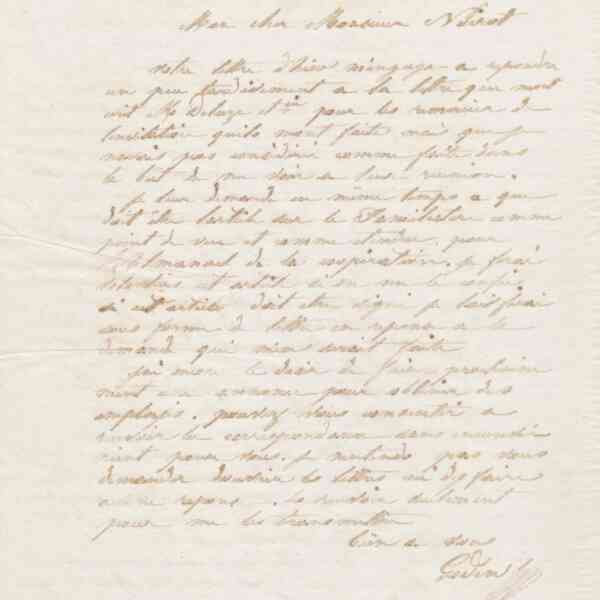 Mon cher Monsieur Nérot
votre lettre d'hier m'engage a repondre
un peu tardivement a la lettre que mont
ecrit Mr Deluze et Cie pour les remercier de
linvitation quils mont faite mais que je
navais pas considéré comme faite dans
le but de me voir a leur reunion.
je leur demande en même temps a que
doit être larticle sur le Familistere comme
point de vue et comme etendue pour
l'Almanach de la cooperation. je ferai
cet article si on me le confie
si cet article doit être signé je le ferai
sous forme de lettre en reponse a la
demande qui m'en serait faite
jai encore le desir de faire prochaine
ment une annonce pour obtenir des
employés. pourriez vous consentir a
recevoir la correspondance sans inconvé
nient pour vous. je n'entends pas vous
demander douvrir les lettres ni dy faire
aucune reponse. les recevoir seulement
pour me les transmettre
bien a vous
Godin